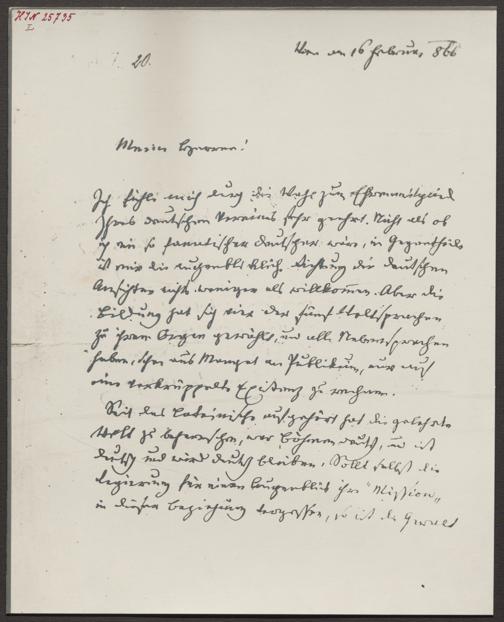 HIN 25795
I.
20.
Wien am 16 Februar 866
Meine Herren!
Ich fühle mich durch die Wahl zum Ehrenmitglied
Ihres deutschen Vereines sehr geehrt. Nicht als ob
ich ein so fanatischer Deutscher wäre, im Gegentheile
ist mir die augenblickliche Richtung der deutschen
Ansichten nichts weniger als willkommen. Aber die
Bildung hat sich vier oder fünf Weltsprachen
zu ihrem Organ gewählt, und alle Nebensprachen
haben, schon aus Mangel an Publikum, nur auf
eine verkrüppelte Existenz zu rechnen.
Seit das Lateinische aufgehört hat die gelehrte
Welt zu beherrschen, war Böhmen deutsch, und ist
deutsch und wird deutsch bleiben. Sollte selbst die
Regierung für einen Augenblick ihre "Mission"
in dieser Beziehung vergessen, so ist die Gewalt